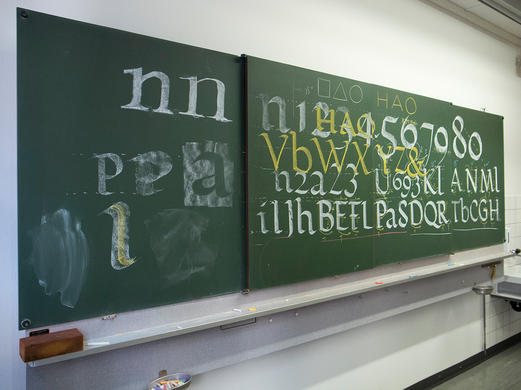 nn
PPa
l
□△○ HAO
HAO 4567980
VbWXYZ&
n2a23 U693Kl ANMl
ilJhBEFL Pa8DQR TbCGH